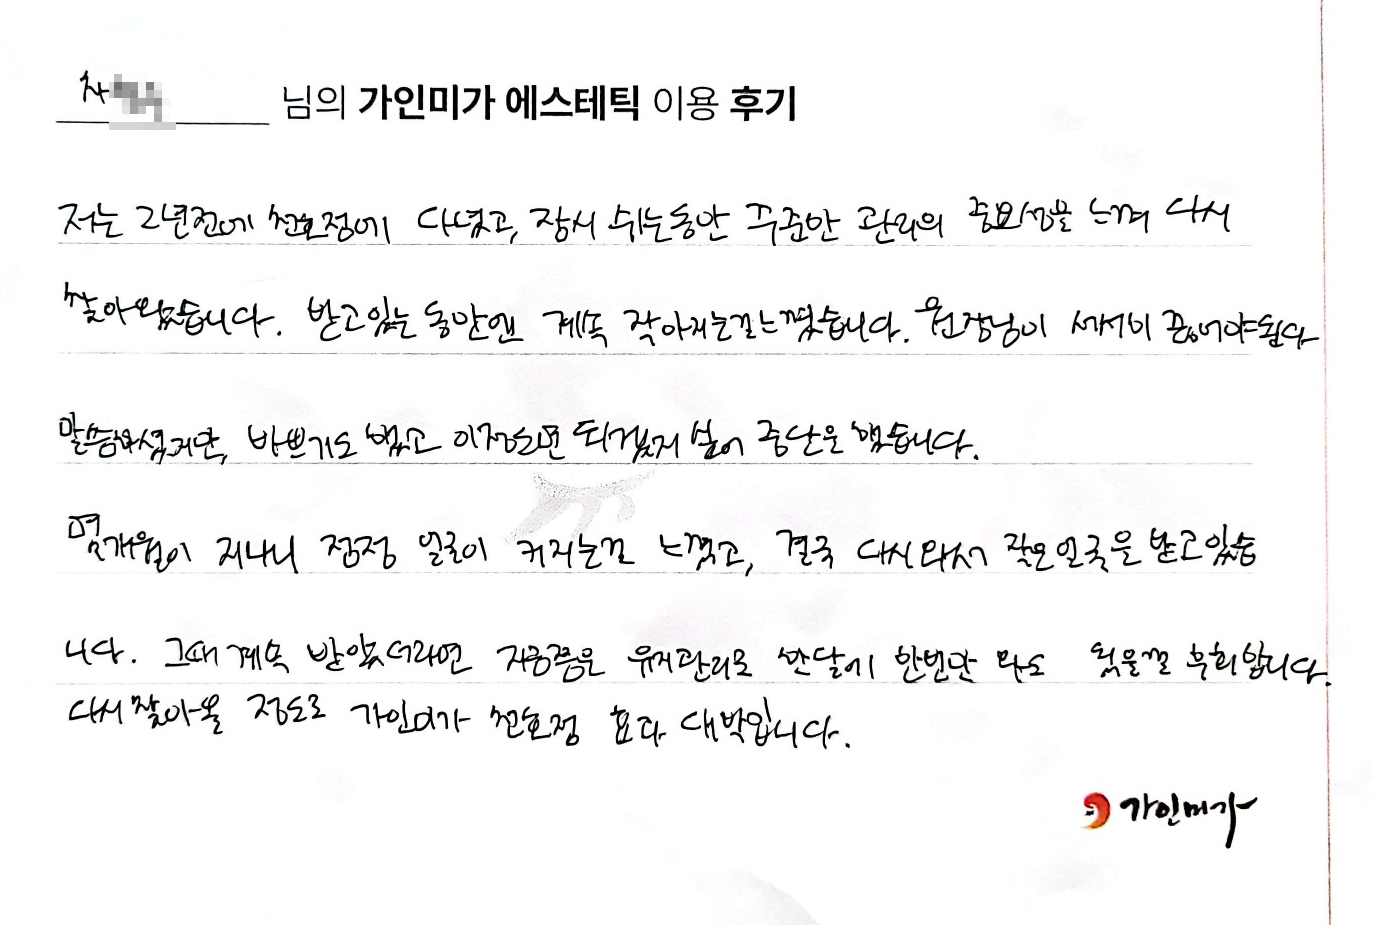 차 님의 가인미가 에스테틱 이용 후기
저는 2년전에 천호점에 다녔고, 잠시 쉬는동안 꾸준한 관리의 중요성을 느껴 다시
찾아왔습니다. 받고있는 동안엔 계속 작아지는걸 느꼈습니다. 원장님이 서서히 끊어야된다
말씀하셨지만, 바쁘기도 했고 이정도면 되겠지 싶어 중단을 했습니다.
몇개월이 지나니 점점 얼굴이 커지는걸 느꼈고, 결국 다시와서 작은얼굴을 받고있습
니다. 그때 계속 받았더라면 지금쯤은 유지관리로 한달에 한번만 와도 됬을껄 후회합니다.
다시찾아올 정도로 가인미가 천호점 효과 대박입니다.
가인미가